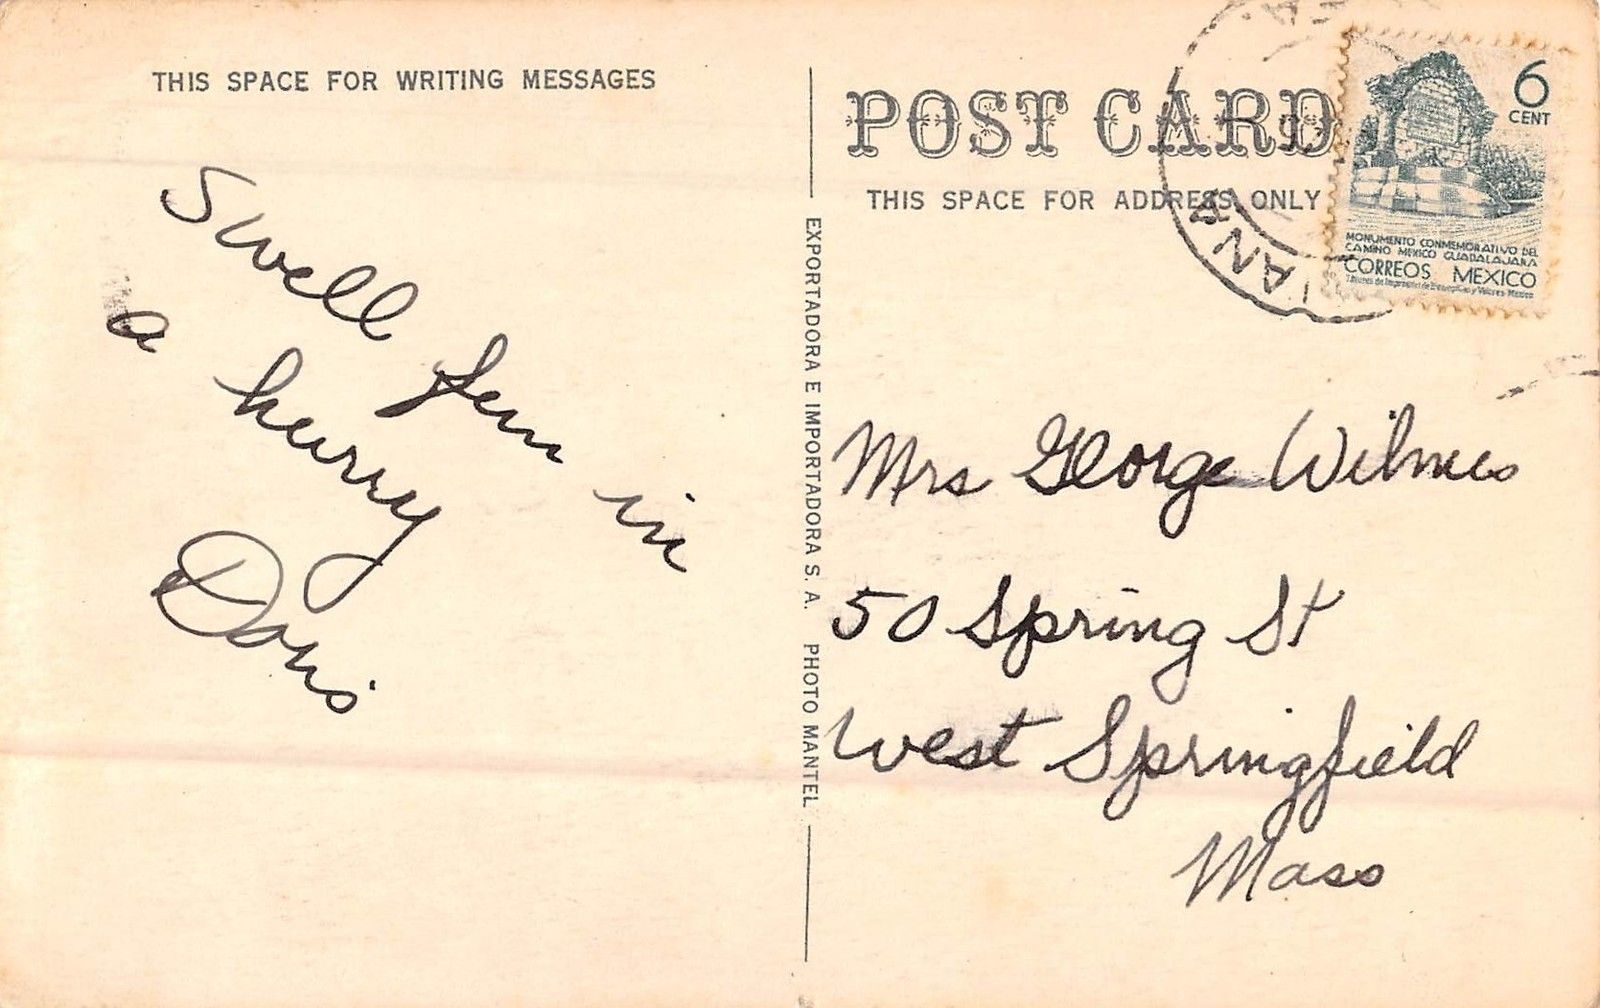 THIS SPACE FOR WRITING MESSAGES
Swell fun in
a hurry
Doris
EXPORTADORA E IMPORTADORA S. A. PHOTO MANTEL
POST CARD
THIS SPACE FOR ADDRESS ONLY
6
CENT
MONUMENTO CONMEMORATIVO DEL
CAMINO MEXICO GUADALAJARA
CORREOS MEXICO
Mrs George Wilmes
50 Spring St
West Springfield
Mass